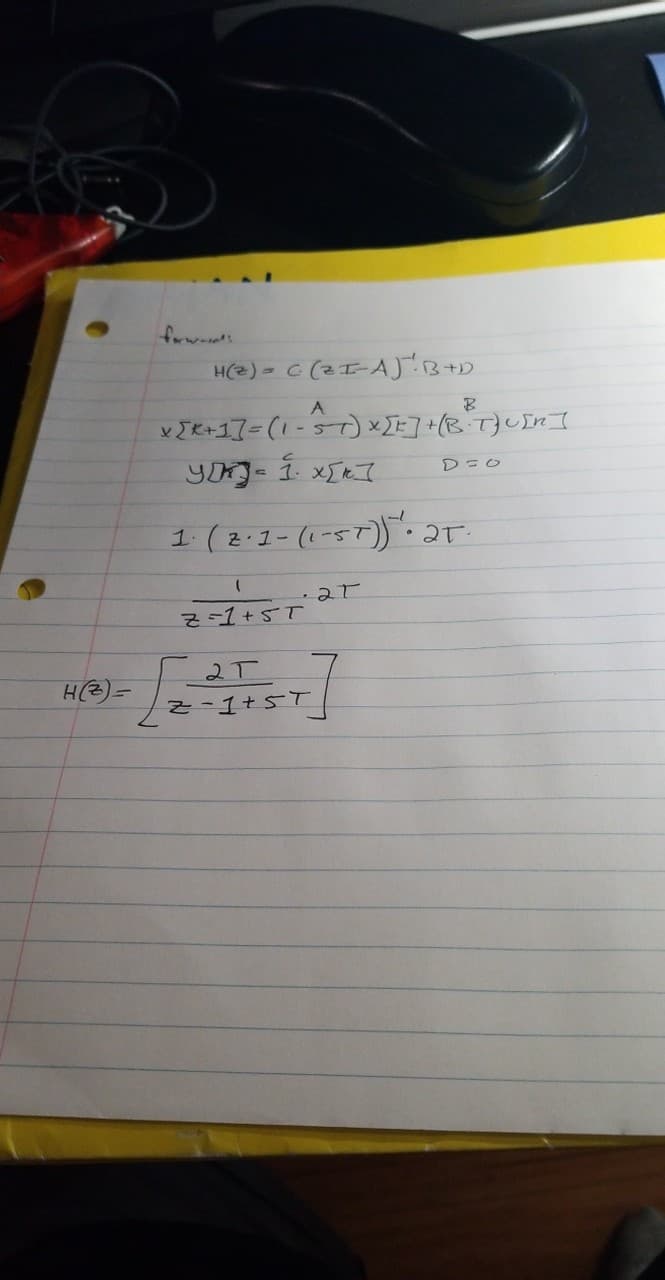 forwards:
H(z) = C (zI-A)⁻¹·B+D
A B
x[k+1]=(1-5T)x[k]+(B·T)u[k]
C
y[k]= 1· x[k] D=0
1·(z·1-(1-5T))⁻¹· 2T·
1/(z-1+5T) · 2T
H(z)= [2T/(z-1+5T)]